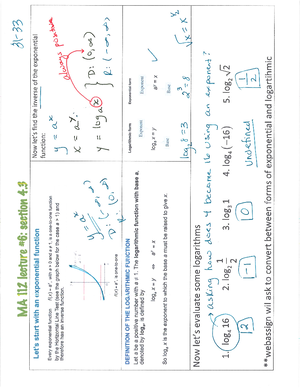 MA 112 lecture #6: section 4.3
21-33
Let's start with an exponential function
Every exponential function f(x) = aˣ, with a > 0 and a ≠ 1, is a one-to-one function
by the Horizontal Line Test (see the graph below for the case a > 1) and
therefore has an inverse function.
f(x) = aˣ, is one-to-one
y = aˣ
D: (-∞, ∞)
R: (0, ∞)
Now let's find the inverse of the exponential
function:
y = aˣ
x = aʸ
y = log a x
always positive
D: (0, ∞)
R: (-∞, ∞)
DEFINITION OF THE LOGARITHMIC FUNCTION
Let a be a positive number with a ≠ 1. The logarithmic function with base a,
denoted by logₐ, is defined by
logₐ x = y ⇔ aʸ = x
So logₐ x is the exponent to which the base a must be raised to give x.
Logarithmic form
Exponential form
Exponent
Exponent
logₐ x = y
aʸ = x
Base
Base
log₂ 8 = 3
2³ = 8
√x = x^½
Now let's evaluate some logarithms
asking how does 4 become 16 using an exponent?
1. log₄ 16
2. log₂ ½
3. log₃ 1
4. log₄(−16)
5. log₂ √2
2
-1
0
undefined
1/2
**webassign will ask to convert between forms of exponential and logarithmic